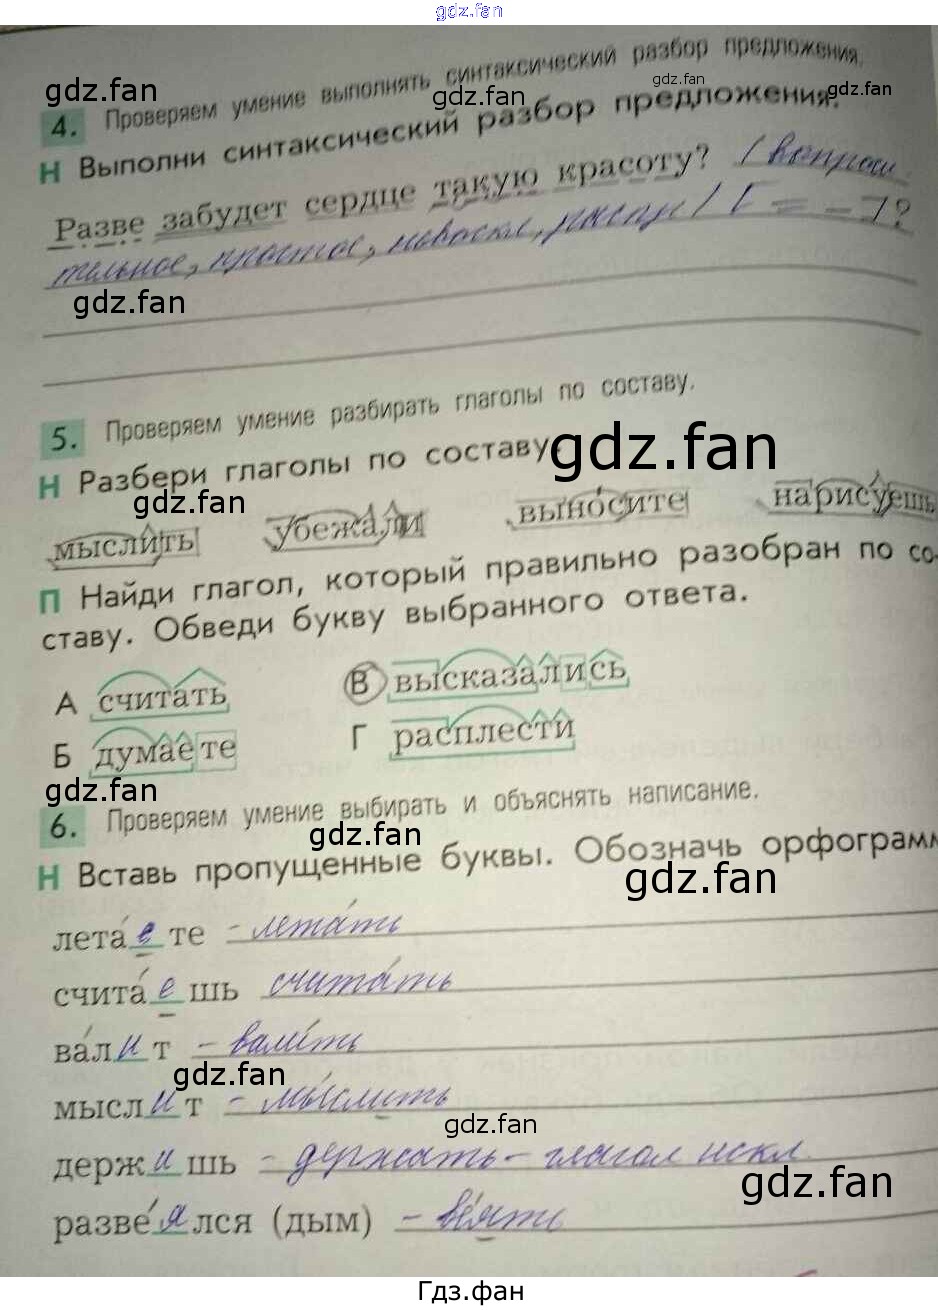 gdz.fan
4. Проверяем умение выполнять синтаксический разбор предложения.
gdz.fan gdz.fan gdz.fan gdz.fan
Н Выполни синтаксический разбор предложения.
Разве забудет сердце такую красоту? (вопроси
тельное, простое, невоскл, распр) [= - -]?
gdz.fan
5. Проверяем умение разбирать глаголы по составу.
gdz.fan
Н Разбери глаголы по составу.
gdz.fan
мыслить убежали выносите нарисуешь
gdz.fan
П Найди глагол, который правильно разобран по со-
ставу. Обведи букву выбранного ответа.
А считать В высказались
Б думаете Г расплести
gdz.fan
6. Проверяем умение выбирать и объяснять написание.
gdz.fan
Н Вставь пропущенные буквы. Обозначь орфограмм
gdz.fan
лета́ е те - лета́ть
счита́ е шь счита́ть
ва́л и т - вали́ть
gdz.fan
мысл и т - мы́слить
gdz.fan
держ и шь - держать - глагол искл.
gdz.fan
разве́ я лся (дым) - ве́ять
Гдз.фан